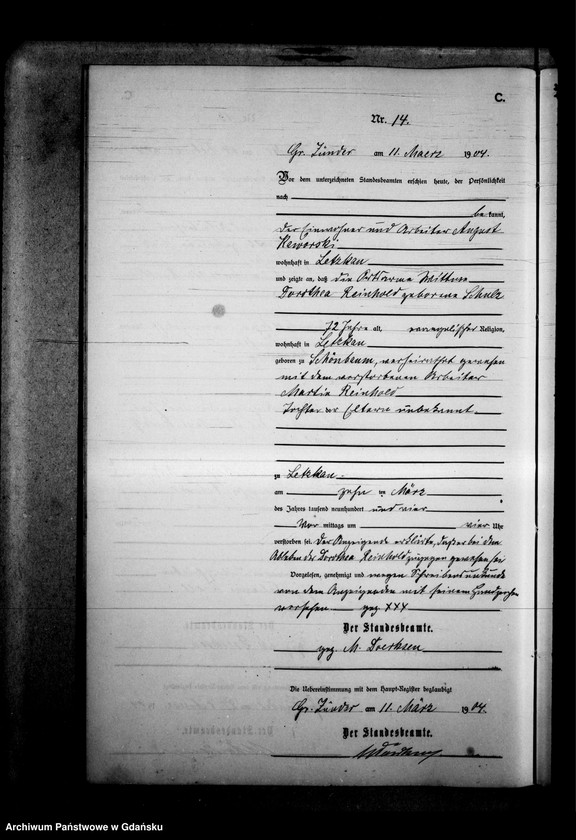 C.
Nr. 14.
Gr. Zünder am 11. Maerz 1904.
Vor dem unterzeichneten Standesbeamten erschien heute, der Persönlichkeit
nach
bekannt,
der Einwohner und Arbeiter August
Kaworski
wohnhaft in Letzkau
und zeigte an, daß die Ortsarme Wittwe
Dorothea Reinhold geborene Schulz
72 Jahre alt, evangelischer Religion,
wohnhaft in Letzkau
geboren zu Schönbaum, verheirathet gewesen
mit dem verstorbenen Arbeiter
Martin Reinhold
Tochter der Eltern unbekannt.
zu Letzkau
am zehn ten März
des Jahres tausend neunhundert und vier
Vor mittags um vier Uhr
verstorben sei. Der Anzeigende erklärte, daß er bei dem
Ableben der Dorothea Reinhold zugegen gewesen sei
Vorgelesen, genehmigt und wegen Schreibensunkunde
von dem Anzeigenden mit seinem Handzeichen
versehen gez XXX
Der Standesbeamte.
gez. M. Doerksen
Die Uebereinstimmung mit dem Haupt-Register beglaubigt
Gr. Zünder am 11. März 1904.
Der Standesbeamte.
Archiwum Państwowe w Gdańsku